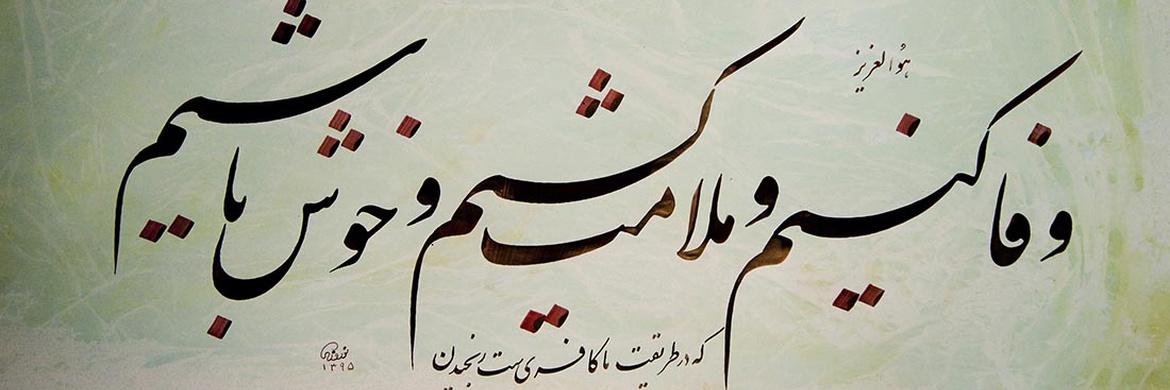 هو العزیز
وفا کنیم و ملامت کشیم و خوش باشیم
که در طریقت ما کافریست رنجیدن
۱۳۹۵